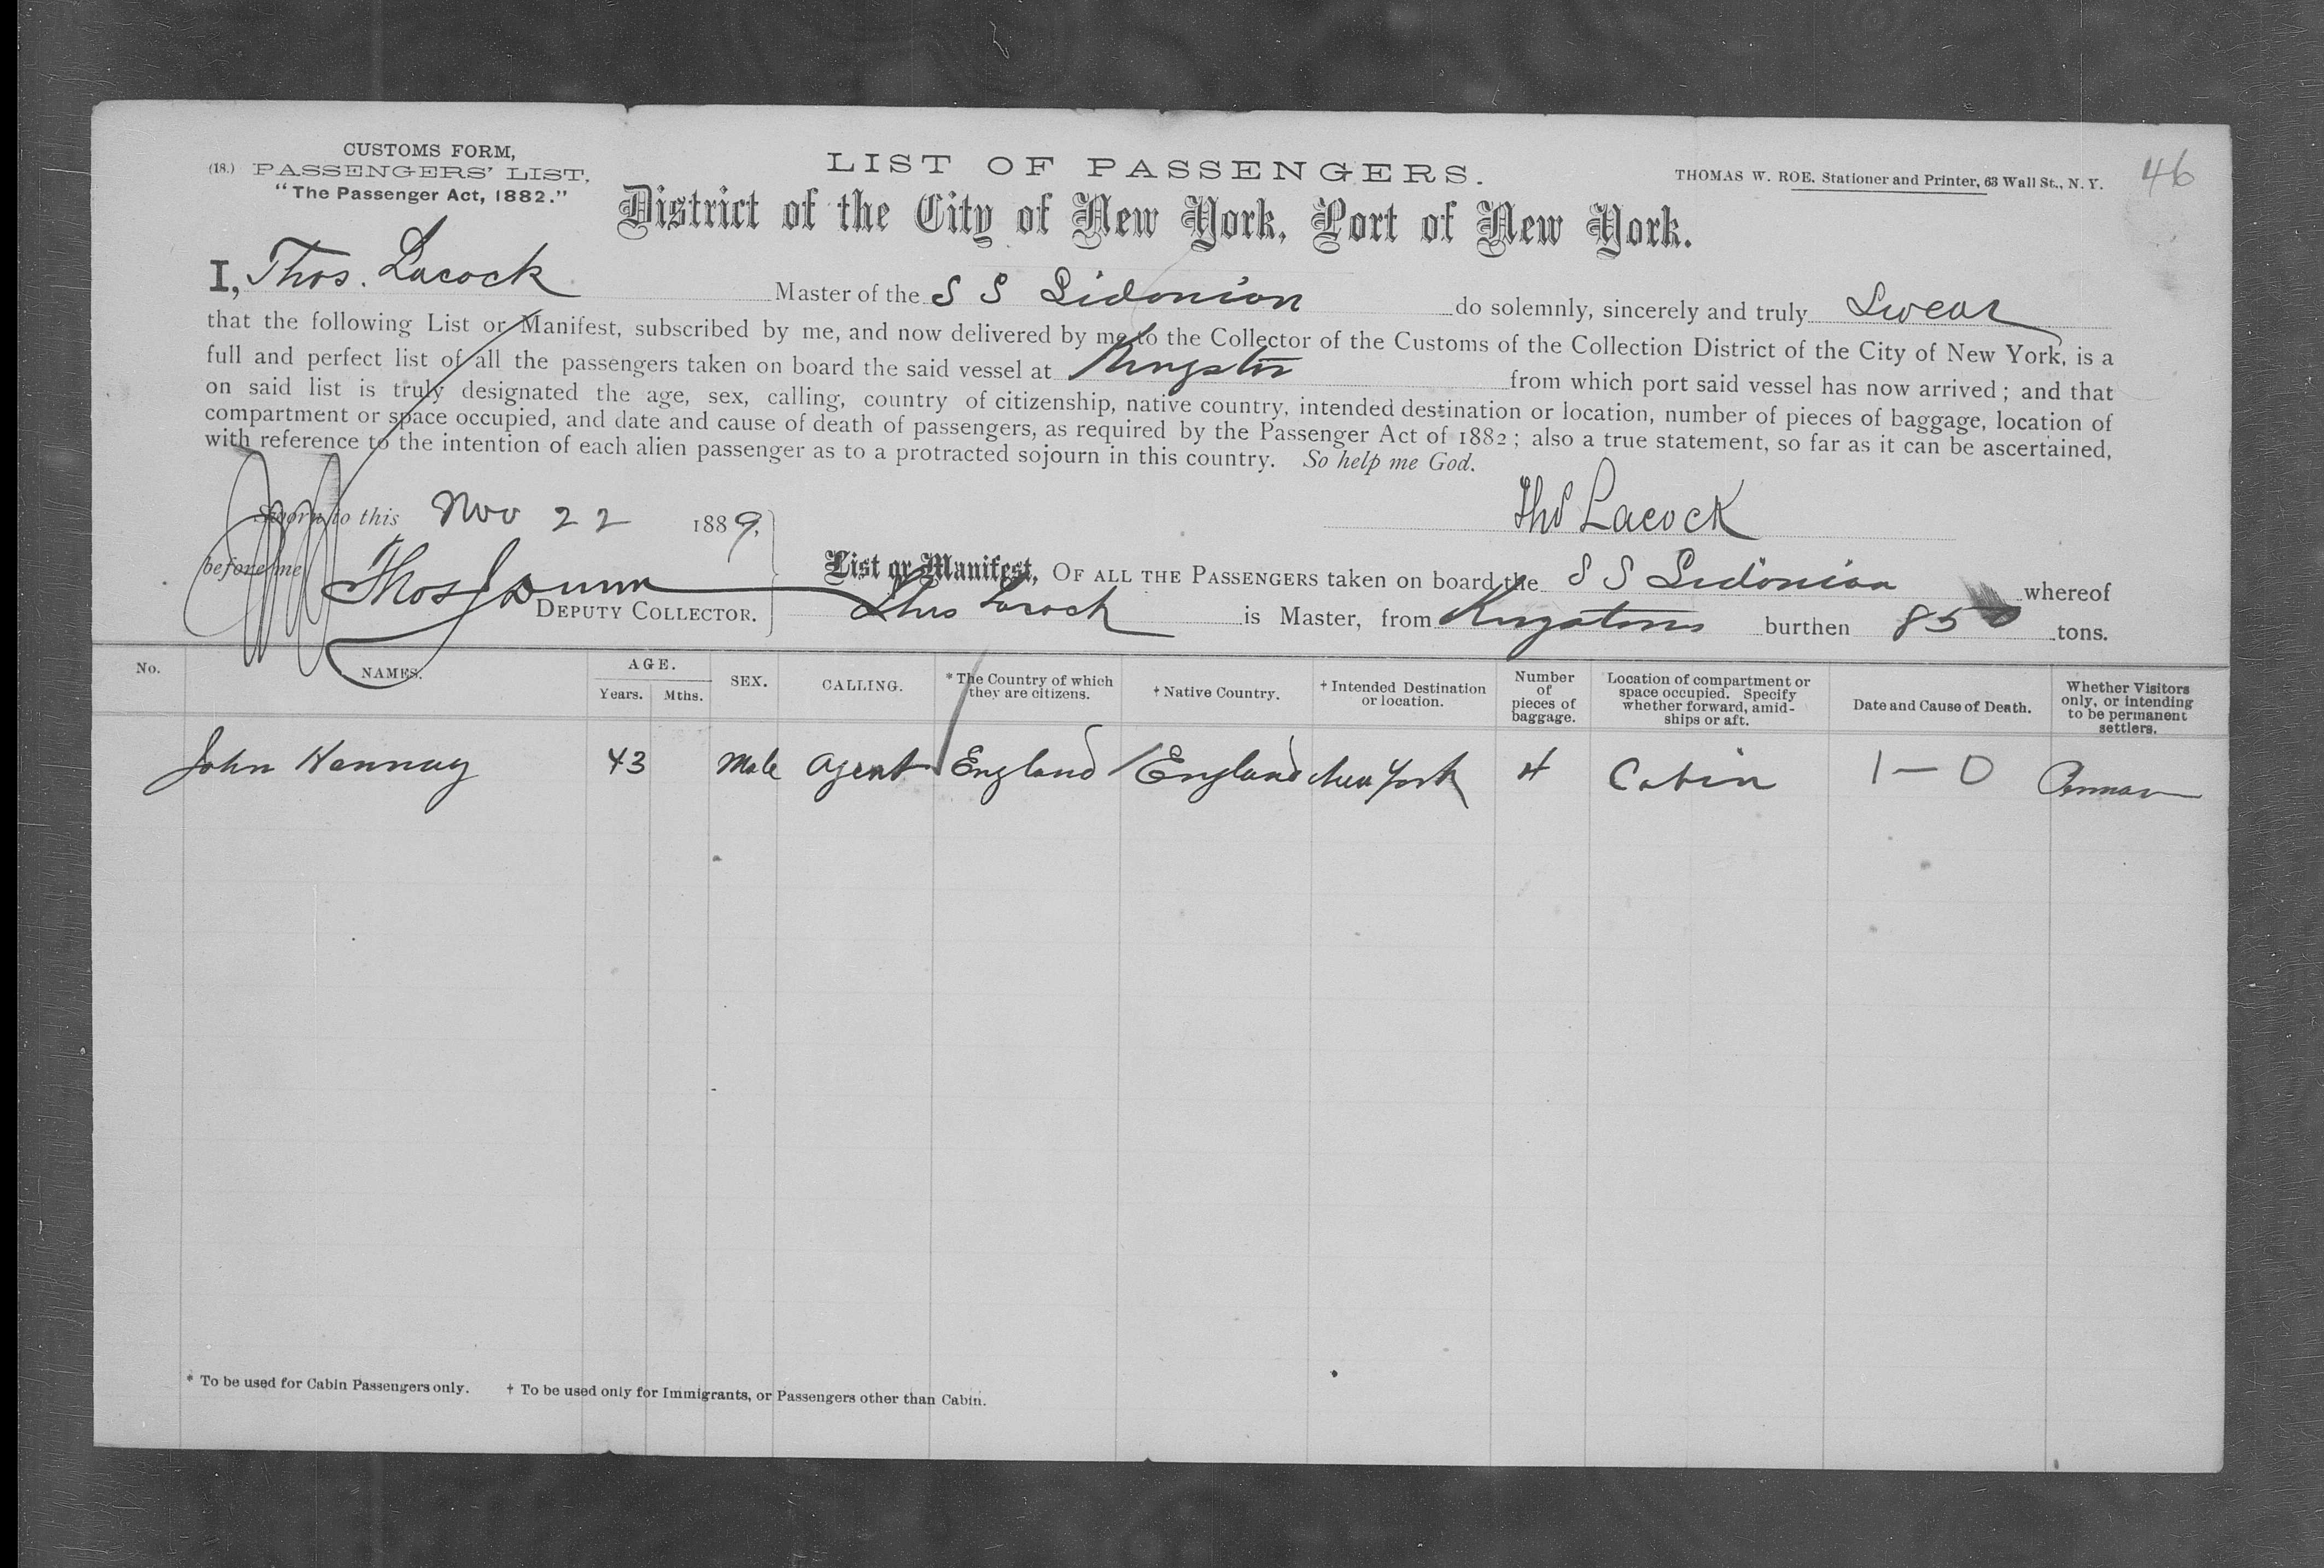 CUSTOMS FORM,
(18.) PASSENGERS' LIST.
"The Passenger Act, 1882."
LIST OF PASSENGERS.
THOMAS W. ROE. Stationer and Printer, 63 Wall St., N.Y.
46
District of the City of New York, Port of New York.
I, Thos. Lacock Master of the S S Sidonian do solemnly, sincerely and truly Swear
that the following List or Manifest, subscribed by me, and now delivered by me to the Collector of the Customs of the Collection District of the City of New York, is a
full and perfect list of all the passengers taken on board the said vessel at Kingston from which port said vessel has now arrived; and that
on said list is truly designated the age, sex, calling, country of citizenship, native country, intended destination or location, number of pieces of baggage, location of
compartment or space occupied, and date and cause of death of passengers, as required by the Passenger Act of 1882; also a true statement, so far as it can be ascertained,
with reference to the intention of each alien passenger as to a protracted sojourn in this country. So help me God.
Sworn to this Nov 22 1889,
Thos Lacock
before me Thos J Dunn
DEPUTY COLLECTOR.
List or Manifest, OF ALL THE PASSENGERS taken on board the S S Sidonian whereof
Thos Lacock is Master, from Kingston burthen 850 tons.
No. NAMES. AGE. Years. Mths. SEX. CALLING. *The Country of which they are citizens. †Native Country. †Intended Destination or location. Number of pieces of baggage. Location of compartment or space occupied. Specify whether forward, amidships or aft. Date and Cause of Death. Whether Visitors only, or intending to be permanent settlers.
John Hannay 43 Male Agent England England New York 4 Cabin 1 — 0
* To be used for Cabin Passengers only. † To be used only for Immigrants, or Passengers other than Cabin.